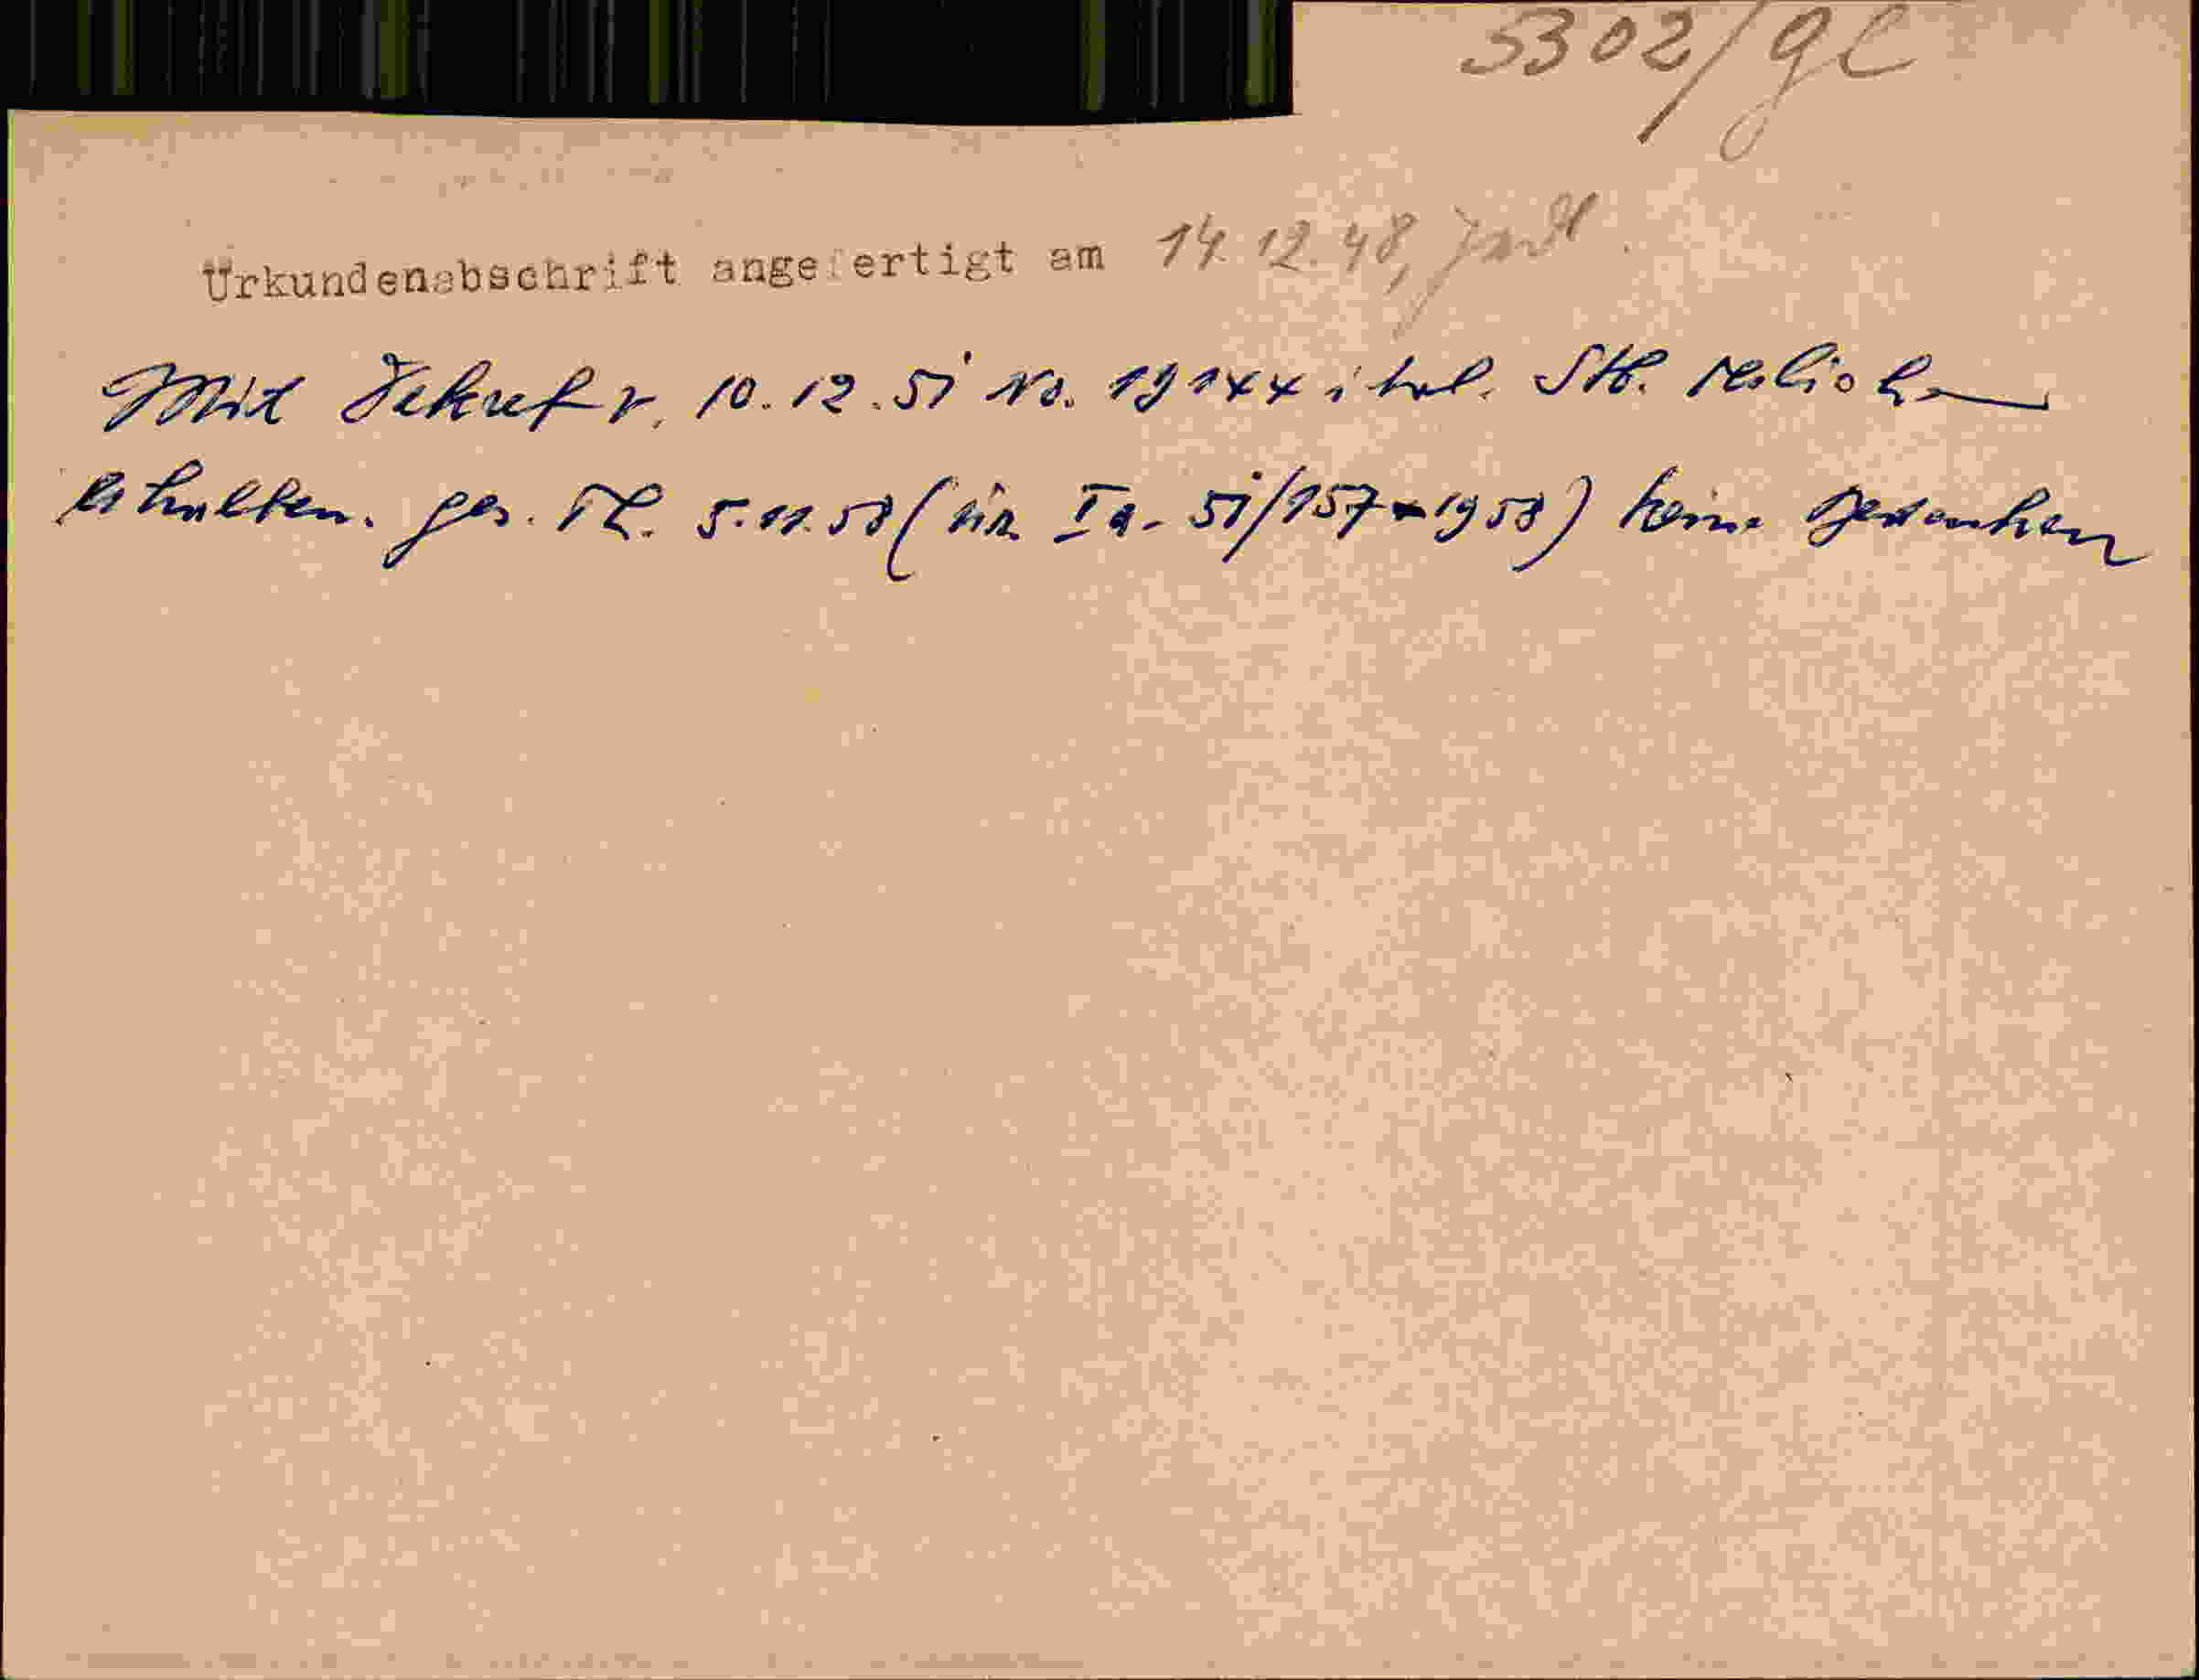 5302/gl
Urkundenabschrift angefertigt am 14.12.48,
Mit Dekret v. 10.12.51 No. 19144 ital. Stb. verliehen
erhalten. ges. 5.11.58 ( Ia- 51/157-1958) keine Bedenken